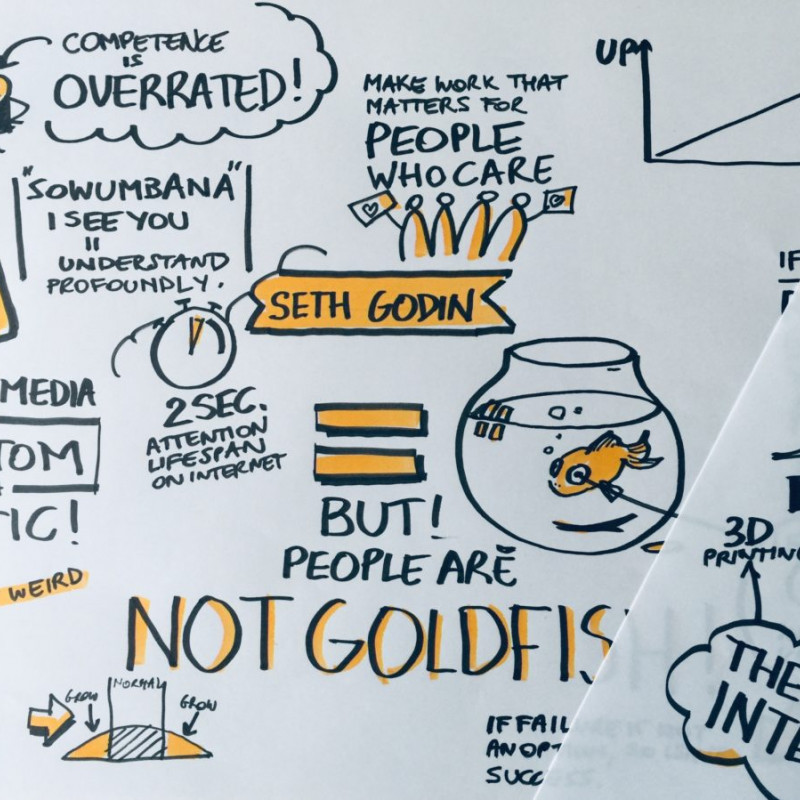 COMPETENCE
IS
OVERRATED!
MAKE WORK THAT
MATTERS FOR
PEOPLE
WHO CARE
UP
"SOWUMBANA"
I SEE YOU
=
UNDERSTAND
PROFOUNDLY.
SETH GODIN
IF
MEDIA
TOM
TIC!
WEIRD
2 SEC.
ATTENTION
LIFESPAN
ON INTERNET
=
BUT!
PEOPLE ARE
NOT GOLDFISH!
GROW
NORMAL
GROW
3D
PRINTING
THE
INTE
IF FAILURE IS NOT
AN OPTION, SO IS
SUCCESS.